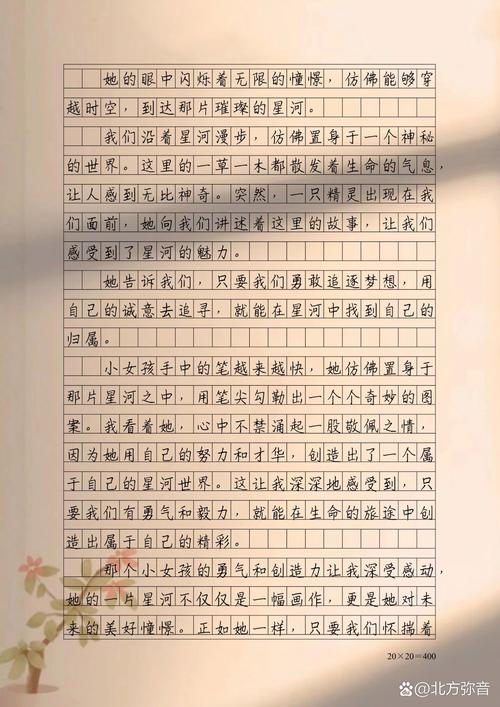 她的眼中闪烁着无限的憧憬，仿佛能够穿
越时空，到达那片璀璨的星河。
我们沿着星河漫步，仿佛置身于一个神秘
的世界。这里的一草一木都散发着生命的气息，
让人感到无比神奇。突然，一只精灵出现在我
们面前，她向我们讲述着这里的故事，让我们
感受到了星河的魅力。
她告诉我们，只要我们勇敢追逐梦想，用
自己的诚意去追寻，就能在星河中找到自己的
归属。
小女孩手中的笔越来越快，她仿佛置身于
那片星河之中，用笔尖勾勒出一个个奇妙的图
案。我看着她，心中不禁涌起一股敬佩之情，
因为她用自己的努力和才华，创造出了一个属
于自己的星河世界。这让我深深地感受到，只
要我们有勇气和毅力，就能在生命的旅途中创
造出属于自己的精彩。
那个小女孩的勇气和创造力让我深受感动，
她的一片星河不仅仅是一幅画作，更是她对未
来的美好憧憬。正如她一样，只要我们怀揣着
20×20=400
@北方弥音